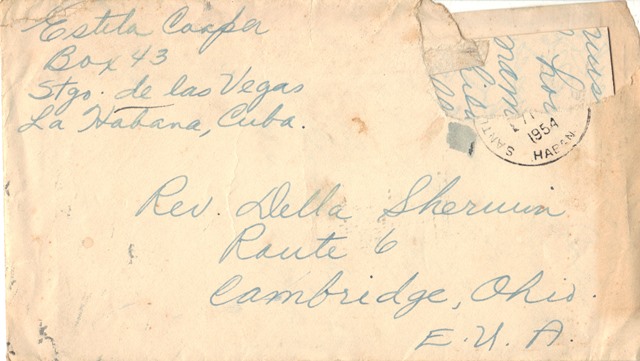 Estela Cooper
Box 43
Stgo. de las Vegas
La Habana, Cuba.
1954
HABAN
Rev. Della Sherwin
Route 6
Cambridge, Ohio.
E.U.A.